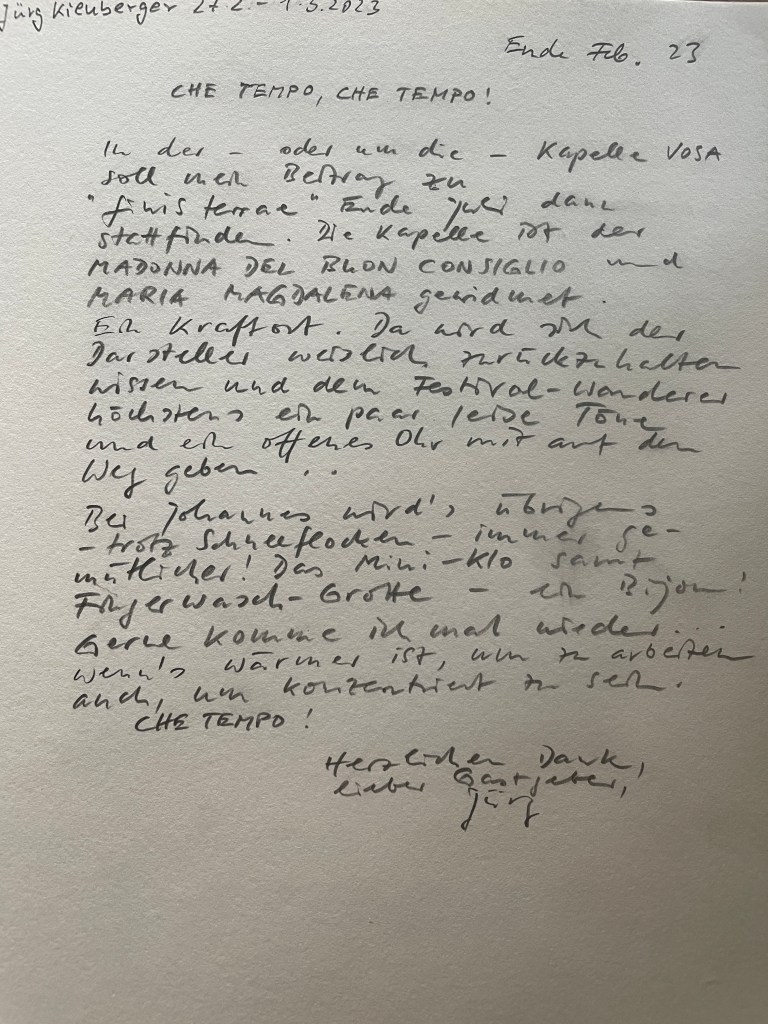 Jürg Kienberger 27.2. - 1.3.2023
Ende Feb. 23
CHE TEMPO, CHE TEMPO!
In der - oder um die - Kapelle VOSA
soll mein Beitrag zu
"finis terrae" Ende Juli dann
stattfinden. Die Kapelle ist der
MADONNA DEL BUON CONSIGLIO und
MARIA MAGDALENA gewidmet.
Ein Kraftort. Da wird sich der
Darsteller weislich zurückzuhalten
wissen und dem Festival-Wanderer
höchstens ein paar leise Töne
und ein offenes Ohr mit auf den
Weg geben ..
Bei Johannes wird's übrigens
- trotz Schneeflocken - immer ge-
mütlicher! Das Mini-Klo samt
Fingerwasch-Grotte - ein Bijou!
Gerne komme ich mal wieder...
wenn's wärmer ist, um zu arbeiten
auch, um konzentriert zu sein.
CHE TEMPO!
Herzlichen Dank,
lieber Gastgeber,
Jürg